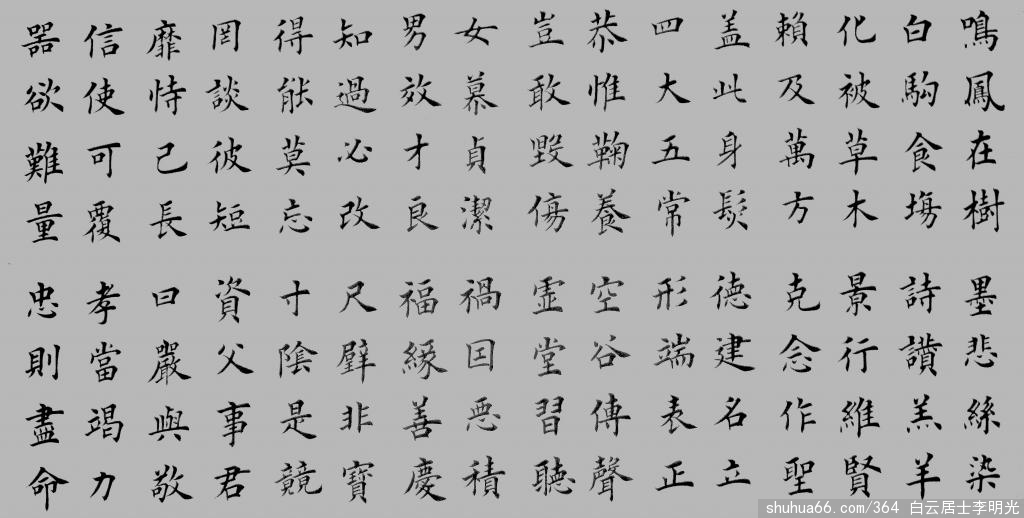 鳴鳳在樹
白駒食塲
化被草木
賴及萬方
盖此身髮
四大五常
恭惟鞠養
豈敢毀傷
女慕貞潔
男效才良
知過必改
得能莫忘
罔談彼短
靡恃己長
信使可覆
器欲難量
墨悲絲染
詩讚羔羊
景行維賢
克念作聖
德建名立
形端表正
空谷傳聲
虛堂習聽
禍因悪積
福緣善慶
尺璧非寶
寸陰是競
資父事君
曰嚴與敬
孝當竭力
忠則盡命
shuhua66.com/364 白云居士李明光